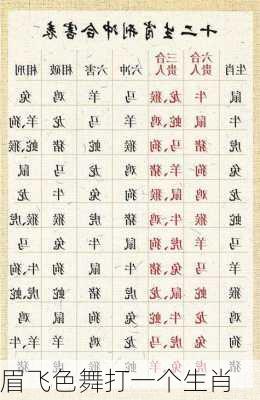 十二生肖刑冲合害表
生肖 六合贵人 三合贵人 六冲 六害 相破 相刑
鼠 牛 龙、猴 马 羊 鸡 兔
牛 鼠 蛇、鸡 羊 马 龙 羊、狗
虎 猪 马、狗 猴 蛇 猪 蛇、猴
兔 狗 羊、猪 鸡 龙 马 鼠
龙 鸡 鼠、猴 狗 兔 牛 龙
蛇 猴 牛、鸡 猪 虎 猴 猴、虎
马 羊 虎、狗 鼠 牛 兔 马
羊 马 兔、猪 牛 鼠 狗 牛、狗
猴 蛇 鼠、龙 虎 猪 蛇 虎、蛇
鸡 龙 牛、蛇 兔 狗 鼠 鸡
狗 兔 虎、马 龙 鸡 羊 牛、羊
猪 虎 兔、羊 蛇 猴 虎 猪
眉飞色舞打一个生肖